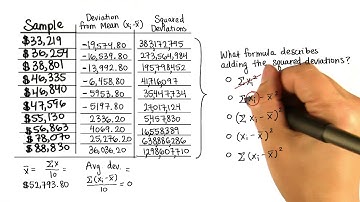 Sample
Deviation from Mean (xᵢ-x̄)
Squared Deviations
$33,219 -19,574.80 383,172,795
$36,254 -16,539.80 273,564,984
$38,801 -13,992.80 195,758,452
$46,335 -6,458.80 41,716,097
$46,840 -5953.80 35,447,734
$47,596 -5197.80 27,017,124
$55,130 2336.20 5,457,830
$56,863 4069.20 16,558,389
$78,070 25,276.20 638,886,286
$88,830 36,036.20 1,298,607,710
x̄ = Σx/10 =
$52,793.80
Avg dev. =
Σ(xᵢ-x̄)/10 = 0
What formula describes
adding the squared deviations?
○ Σx²
○ - x̄²
○ (xᵢ - x̄)²
○ Σ(xᵢ - x̄)²